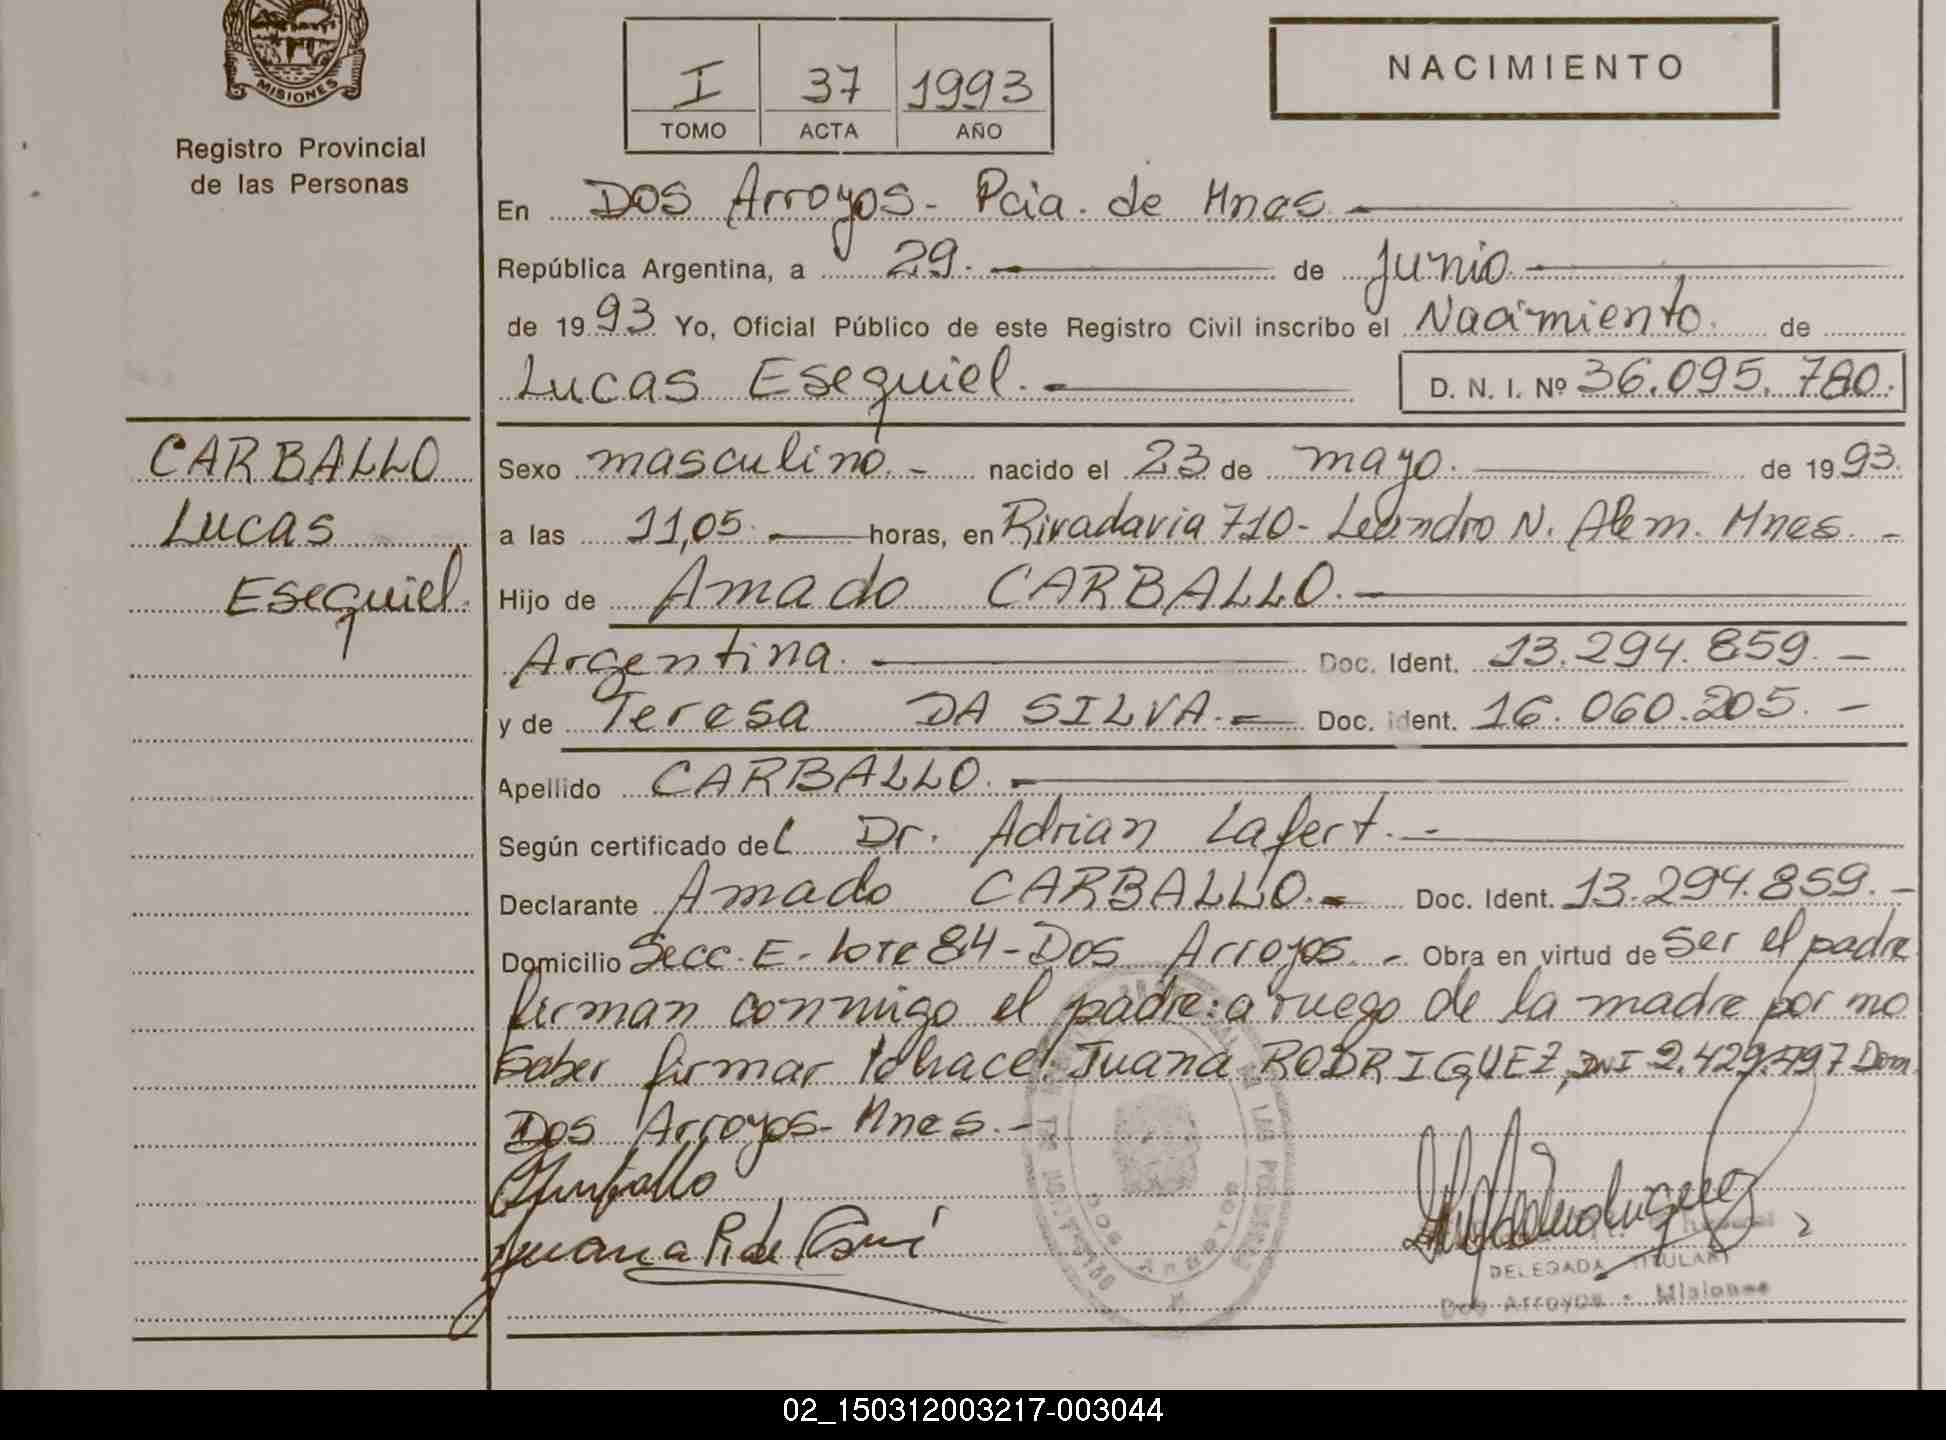 MISIONES
Registro Provincial
de las Personas
I 37 1993
TOMO ACTA AÑO
NACIMIENTO
En Dos Arroyos - Pcia. de Mnes
República Argentina, a 29. de junio
de 1993 Yo, Oficial Público de este Registro Civil inscribo el Nacimiento. de
Lucas Esequiel. D. N. I. Nº 36.095.780.
CARBALLO
Lucas
Esequiel.
Sexo masculino. - nacido el 23 de mayo. de 1993.
a las 11,05 horas, en Rivadavia 710 - Leandro N. Alem. Mnes. -
Hijo de Amado CARBALLO.
Argentina. Doc. Ident. 13.294.859. -
y de Teresa DA SILVA. Doc. Ident. 16.060.205. -
Apellido CARBALLO.
Según certificado del Dr. Adrian Lafert. -
Declarante Amado CARBALLO. - Doc. Ident. 13.294.859. -
Domicilio Secc. E - lote 84 - Dos Arroyos. - Obra en virtud de ser el padre
firman conmigo el padre: a ruego de la madre por no
saber firmar lo hace: Juana RODRIGUEZ, DNI 2.429.497 Dom.
Dos Arroyos - Mnes. -
Carballo
Juana R de
DOS ARROYOS
DELEGADA TITULAR
Dos Arroyos - Misiones
02_150312003217-003044